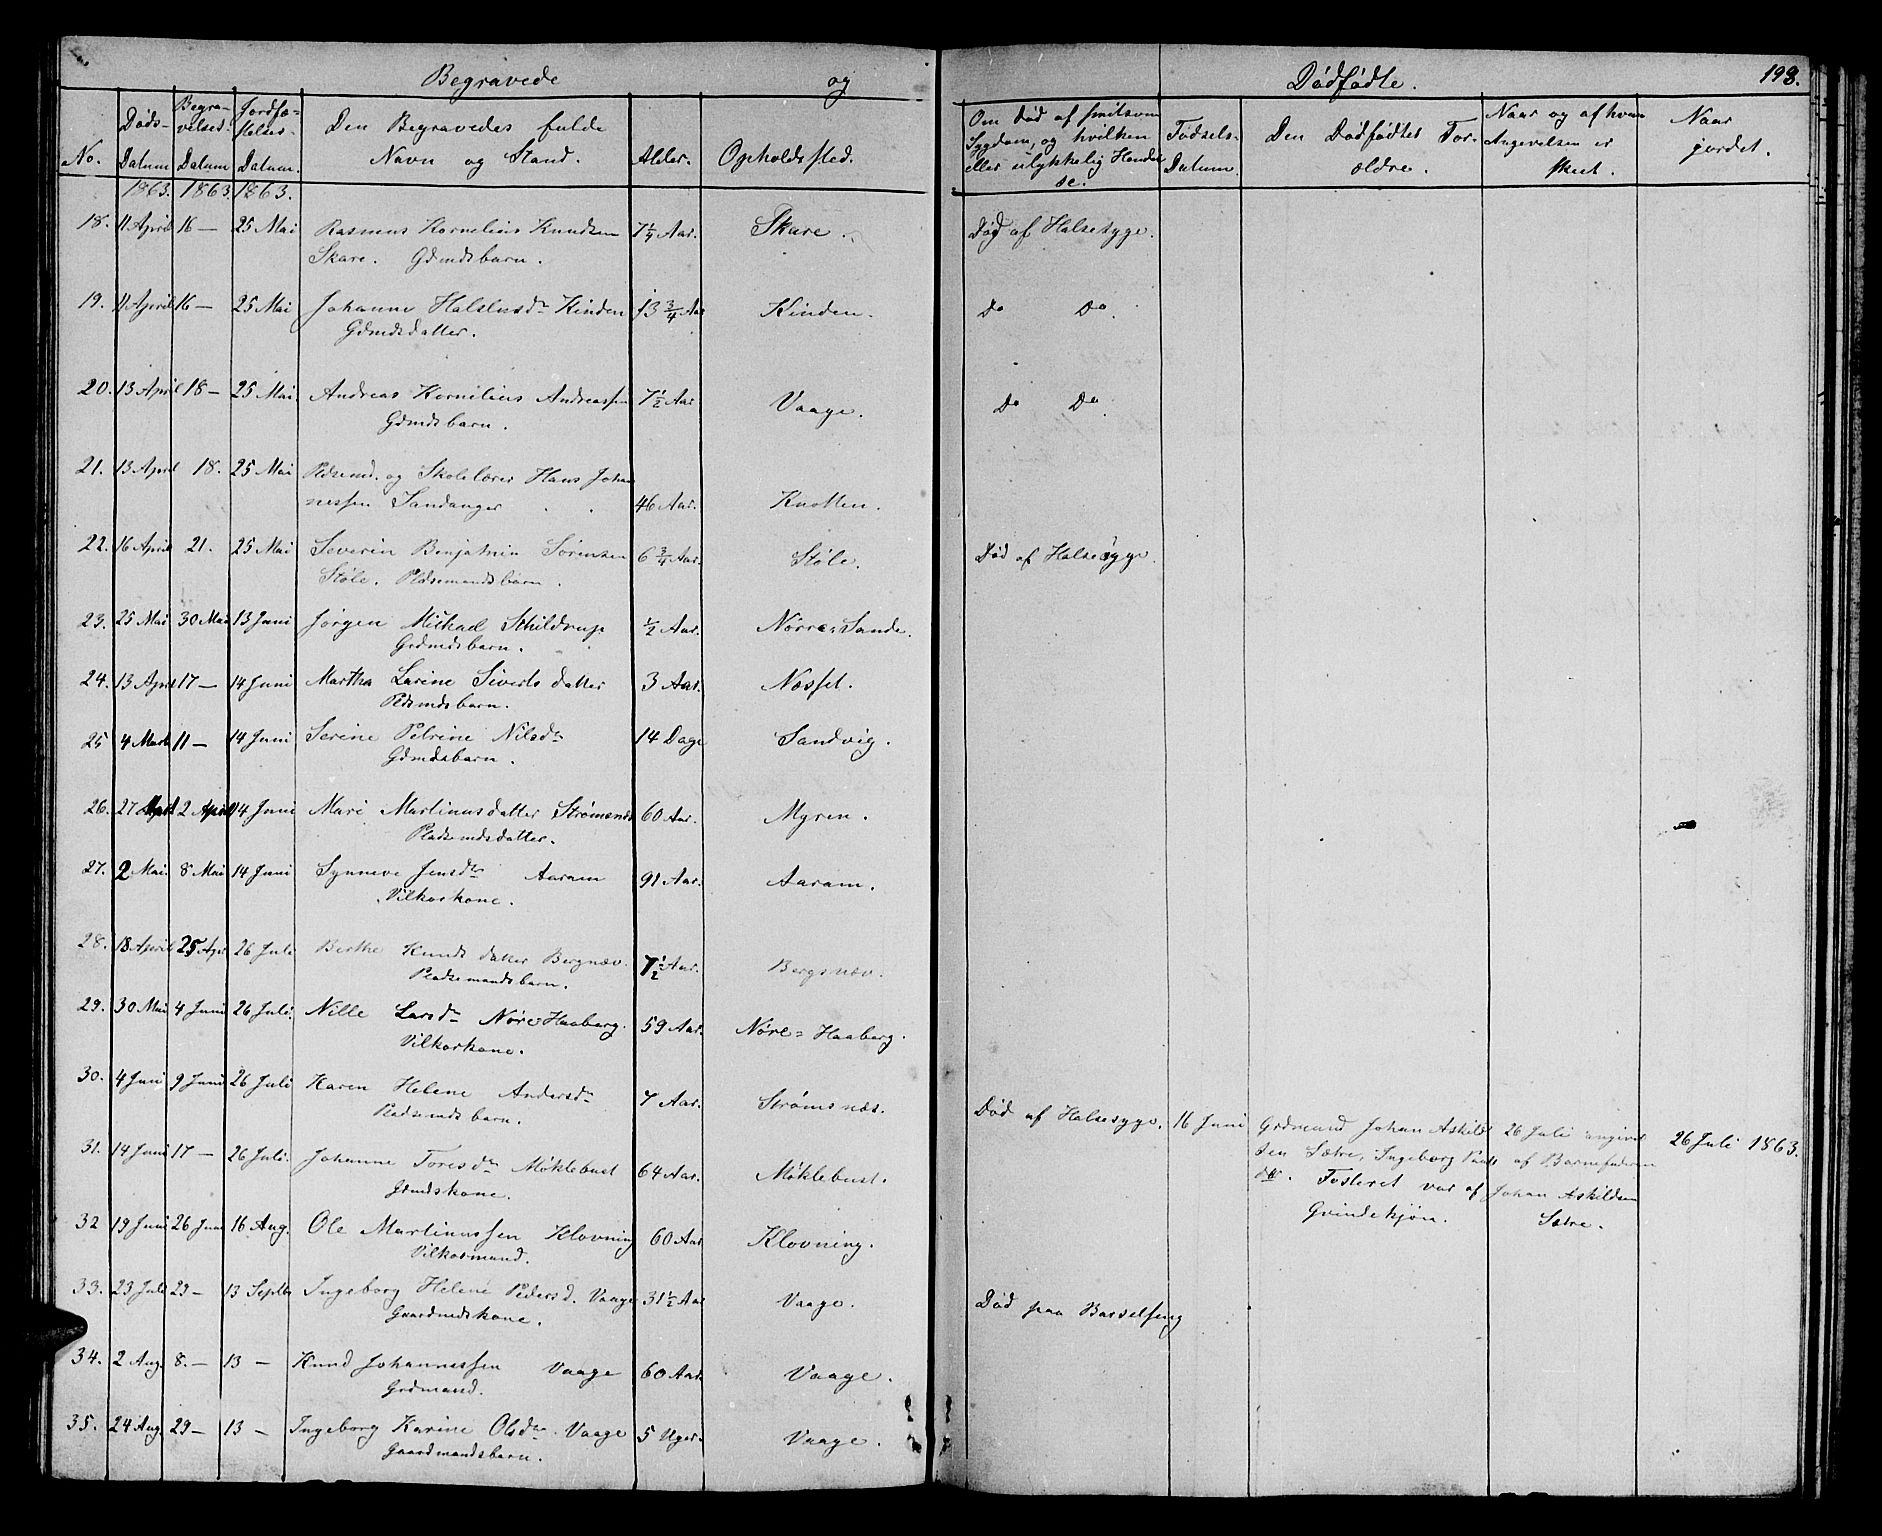 Begravede og Dødfødte. 198.
No. Døds-Datum Begravelses-Datum Jordfæstelses-Datum. Den Begravedes fulde Navn og Stand. Alder. Opholdssted. Om død af smitsom Sygdom, og hvilken eller ulykkelig Hændelse. Fødsels-Datum. Den Dødfødtes Forældre. Naar og af hvem Angivelsen er skeet. Naar jordet.
1863. 1863. 1863.
18. 11 April 16 — 25 Mai Rasmus Kornelius Knudsen 7 1/4 Aar. Skare. Død af Halsesyge.
Skare. Gdmdsbarn.
19. 11 April 16 — 25 Mai Johanne Halsteinsdr Kinden 13 3/4 Aar Kinden. Do Do.
Gdmdsdatter.
20. 13 April 18 — 25 Mai. Andreas Kornelius Andreassen 7 1/2 Aar Vaage. Do Do.
Gdmdsbarn.
21. 13 April 18. 25 Mai Pldsmd. og Skolelærer Hans Johan
nessen Sandanger 46 Aar. Knotten.
22. 16 April 21. 25 Mai Severin Benjamin Sørensen 6 3/4 Aar. Støle. Død af Halsesyge.
Støle. Pldsemandsbarn.
23. 25 Mai 30 Mai 13 Juni Jørgen Mikael Schildrup 1/2 Aar. Nørre-Sande.
Grdmdsbarn.
24. 13 April 17 — 14 Juni Martha Larine Siverts datter 3 Aar. Næsset.
Pldsmdsbarn.
25 4 Marts 11 — 14 Juni Serine Petrine Nilsdr 14 Dage Sandvig.
Gdmdsbarn.
26. 27 2 April 14 Juni Mari Martinusdatter Strømsnæs 60 Aar. Myren.
Pladsemdsdatter.
27. 2 Mai. 8 Mai 14 Juni Synneve Jensdr Aaram 91 Aar. Aaram.
Vilkorkone.
28. 18 April 25 Apr 26 Juli Berthe Knuds datter Bergnæv. 7 1/2 Aar. Bergsnæv.
Pladsemandsbarn.
29. 30 Mai 4 Juni 26 Juli. Nille Larsdr Nøre Haaberg. 59 Aar. Nøre-Haaberg.
Vilkorkone.
30. 4 Juni 9 Juni 26 Juli Karen Helene Andersdr 7 Aar. Strømsnæs. Død af Halsesyge.
Pladsemdsbarn.
16 Juni Grdmand Johan Askild 26 Juli angivet 26 Juli 1863.
sen Sætre, Ingeborg af Barnefaderen
dtr. Fosteret var af Johan Askildsen
Qvindekjøn. Sætre.
31. 14 Juni 17 — 26 Juli. Johanne Toresdr Møklebust 64 Aar. Møklebust.
Gdmdskone.
32 19 Juni 26 Juni 16 Aug. Ole Martinussen Klovning 60 Aar Klovning.
Vilkormand.
33. 23 Juli 29 — 13 Septbr Ingeborg Helene Pedersd. Vaage 31 1/2 Aar Vaage. Død paa Barselseng
Gaardmdskone.
34. 2 Aug. 8. — 13 — Knud Johannessen Vaage 60 Aar. Vaage.
Grdmand.
35. 24 Aug. 29 — 13 — Ingeborg Karine Olsdr. Vaage 5 Uger. Vaage.
Gaardmandsbarn.